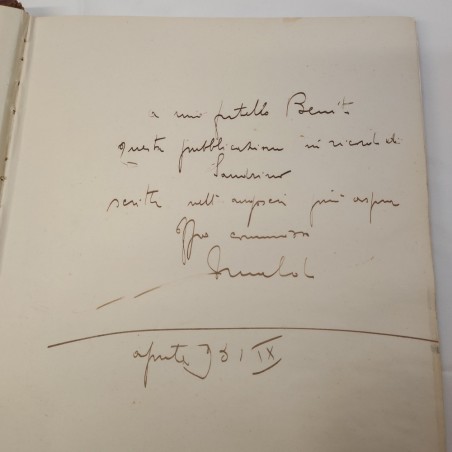 a mio fratello Benito
questa pubblicazione in ricordo di
Sandrino
scritta nell'angoscia più aspra
Offro commosso
Arnaldo
aprile 931 IX